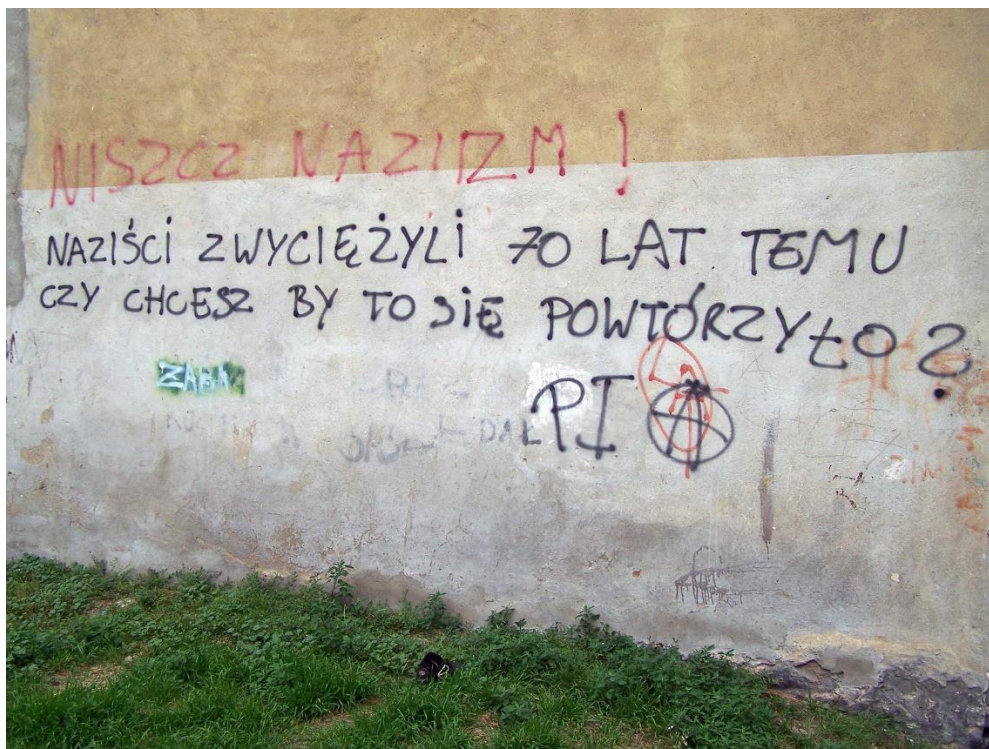 NISZCZ NAZIZM !
NAZIŚCI ZWYCIĘŻYLI 70 LAT TEMU
CZY CHCESZ BY TO SIĘ POWTÓRZYŁO ?
ZABA
PI Ⓐ